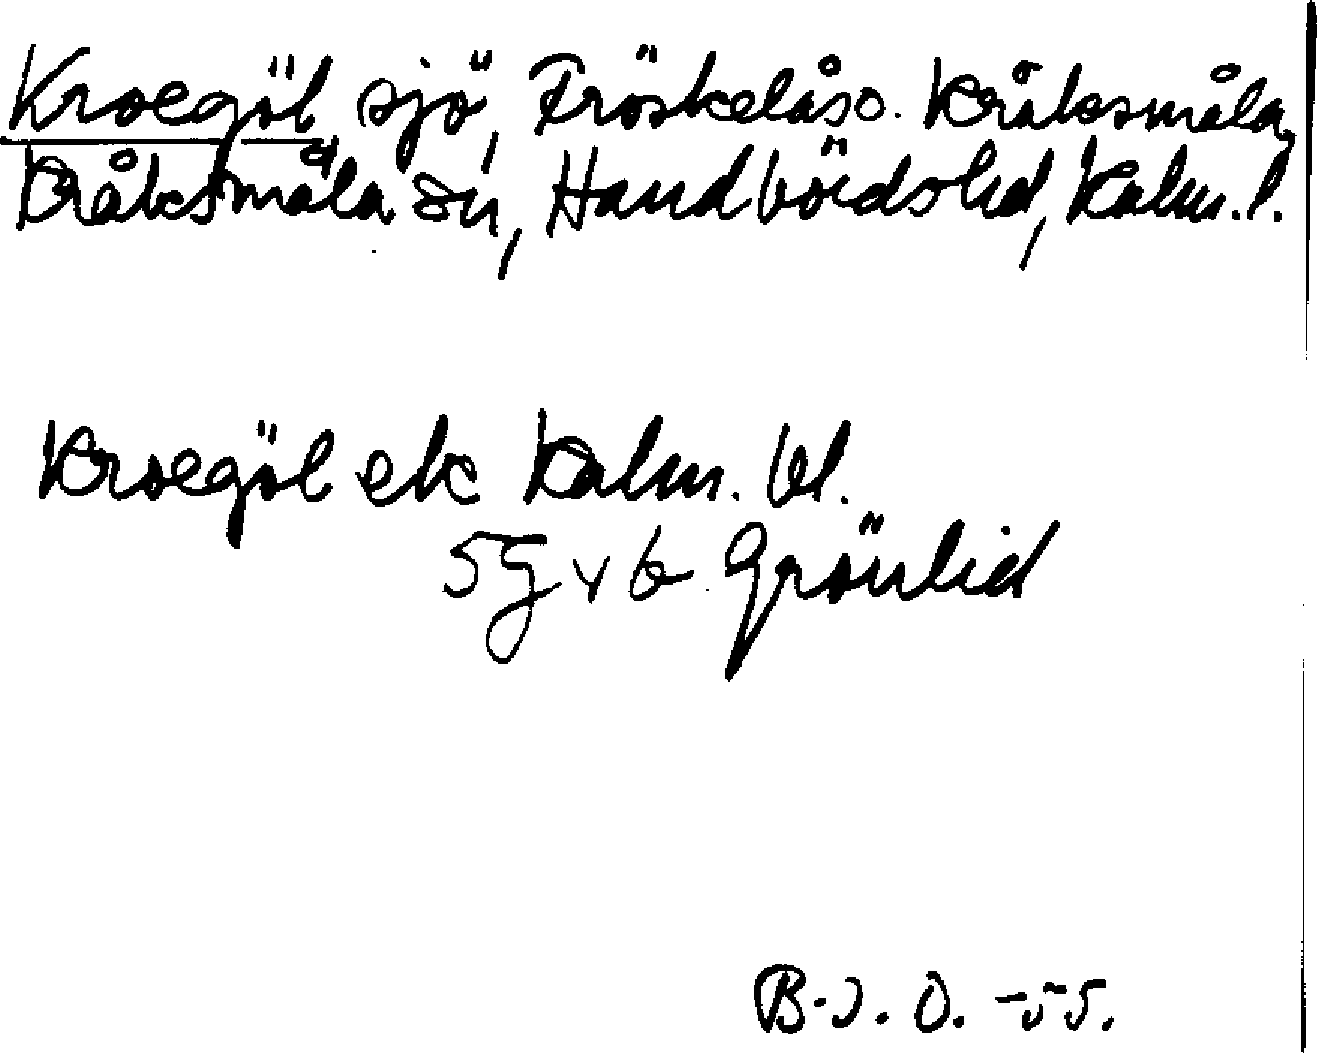 Kroegöl, sjö, Fröskelås o. Kråksmåla,
Kråksmåla sn, Handbörds hd, Kalm. l.
Kroegöl ek Kalm. bl.
5 g v b Grönlid
B-J. O. -55.